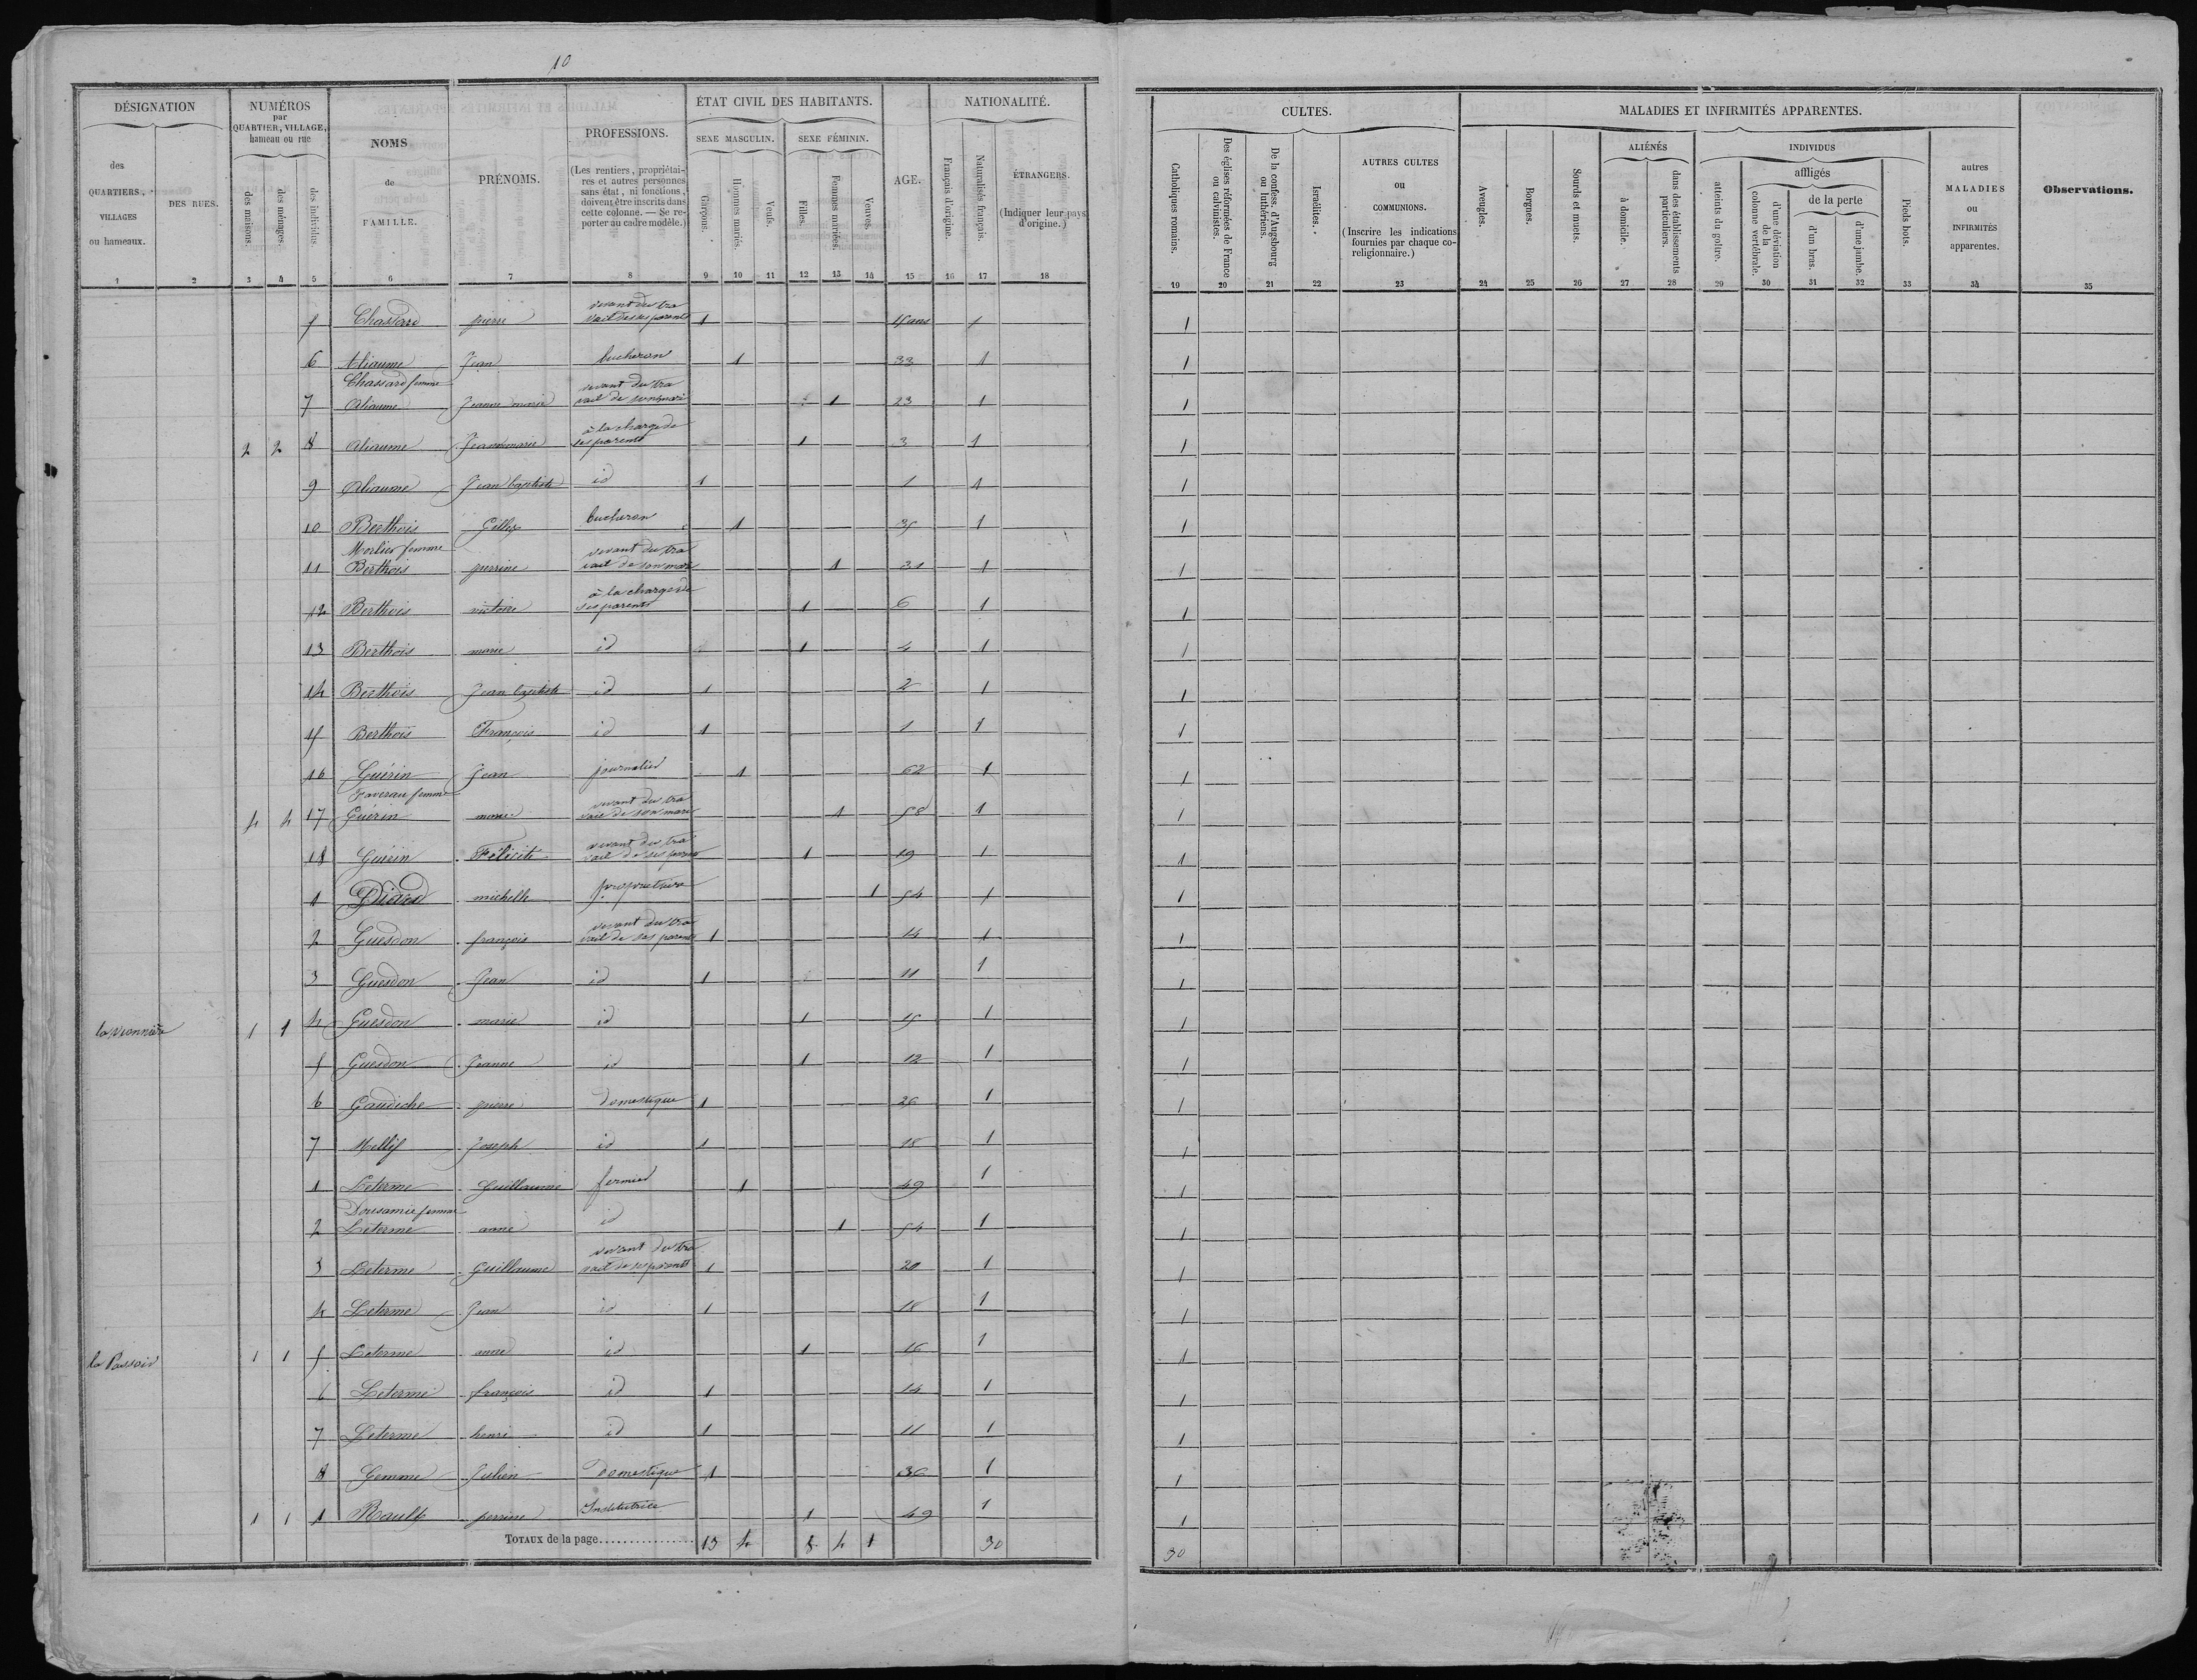 10
DÉSIGNATION
des
QUARTIERS,
VILLAGES
ou hameaux.
DES RUES.
NUMÉROS
par
QUARTIER, VILLAGE,
hameau ou rue
des maisons.
des ménages.
des individus.
NOMS
de
FAMILLE.
PRÉNOMS.
PROFESSIONS.
(Les rentiers, propriétai-
res et autres personnes
sans état, ni fonctions,
doivent être inscrits dans
cette colonne. — Se re-
porter au cadre modèle.)
ÉTAT CIVIL DES HABITANTS.
SEXE MASCULIN.
Garçons.
Hommes mariés.
Veufs.
SEXE FÉMININ.
Filles.
Femmes mariées.
Veuves.
AGE.
NATIONALITÉ.
Français d'origine.
Naturalisés français.
ÉTRANGERS.
(Indiquer leur pays
d'origine.)
1 2 3 4 5 6 7 8 9 10 11 12 13 14 15 16 17 18
CULTES.
Catholiques romains.
Des églises réformées de France
ou calvinistes.
De la confess. d'Augsbourg
ou luthériens.
Israélites.
AUTRES CULTES
ou
COMMUNIONS.
(Inscrire les indications
fournies par chaque co-
religionnaire.)
MALADIES ET INFIRMITÉS APPARENTES.
Aveugles.
Borgnes.
Sourds et muets.
ALIÉNÉS
à domicile.
dans des établissements
particuliers.
INDIVIDUS
atteints du goître.
affligés
d'une déviation
de la
colonne vertébrale.
de la perte
d'un bras.
d'une jambe.
Pieds bots.
autres
MALADIES
ou
INFIRMITÉS
apparentes.
Observations.
19 20 21 22 23 24 25 26 27 28 29 30 31 32 33 34 35
vivant du tra
5 Chassard pierre vail de ses parents 1 15 ans 1 1
6 Aliaume Jean bucheron 1 33 1 1
Chassard femme vivant du tra
7 Aliaume Jeanne marie vail de son mari 1 23 1 1
à la charge de
2 2 8 Aliaume Jeanne marie ses parents 1 3 1 1
9 Aliaume Jean baptiste id 1 1 1 1
10 Berthois Gilles bucheron 1 35 1 1
Morlier femme vivant du tra
11 Berthois perrine vail de son mari 1 31 1 1
à la charge de
12 Berthois victoire ses parents 1 6 1 1
13 Berthois marie id 1 4 1 1
14 Berthois Jean baptiste id 1 2 1 1
15 Berthois François id 1 1 1 1
16 Guérin Jean journalier 1 62 1 1
femme vivant du tra
4 4 17 Guérin marie vail de son mari 1 58 1 1
vivant du tra
18 Guérin Félicité vail de ses parents 1 19 1 1
1 michelle propriétaire 1 54 1 1
vivant du tra
2 Guesdon françois vail de ses parents 1 14 1 1
3 Guesdon Jean id 1 11 1 1
1 1 4 Guesdon marie id 1 15 1 1
5 Guesdon Jeanne id 1 12 1 1
6 Gaudiche pierre Domestique 1 26 1 1
7 Joseph id 1 18 1 1
1 Leterme Guillaume fermier 1 49 1 1
femme
2 Leterme anne id 1 54 1 1
vivant du tra
3 Leterme Guillaume vail de ses parents 1 20 1 1
4 Leterme Jean id 1 18 1 1
la Passoir 1 1 5 Leterme anne id 1 16 1 1
6 Leterme françois id 1 14 1 1
7 Leterme henri id 1 11 1 1
8 Gemme Julien Domestique 1 36 1 1
1 1 1 Rault perrine Institutrice 1 49 1 1
TOTAUX de la page 13 4 8 4 1 30 30